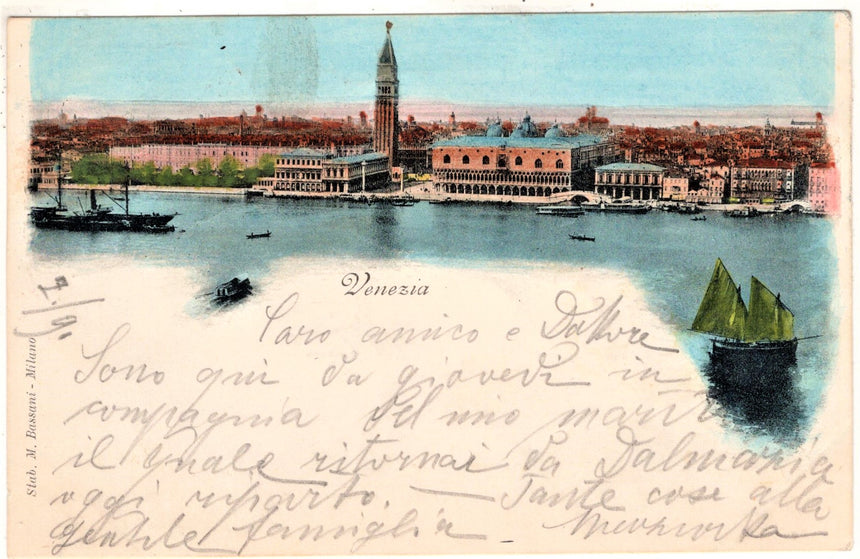 Venezia
7./9.
Caro amico e Dottore
Sono qui da giovedì in
compagnia del mio marito
il quale ritornai da Dalmazia
oggi riparto. — Tante cose alla
gentile famiglia
Stab. M. Bassani - Milano